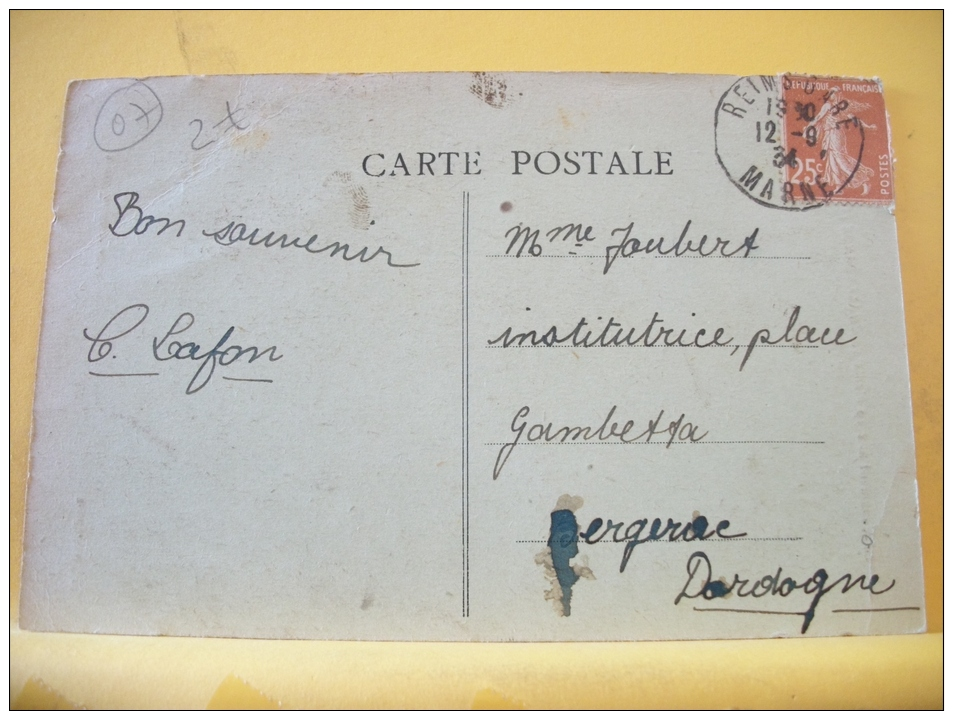 07
2+
CARTE POSTALE
REIMS GARE
19 30
12 -9
34
MARNE
REPUBLIQUE FRANÇAISE
25c
POSTES
Bon souvenir
C. Lafon
Mme Joubert
institutrice, place
Gambetta
Bergerac
Dordogne